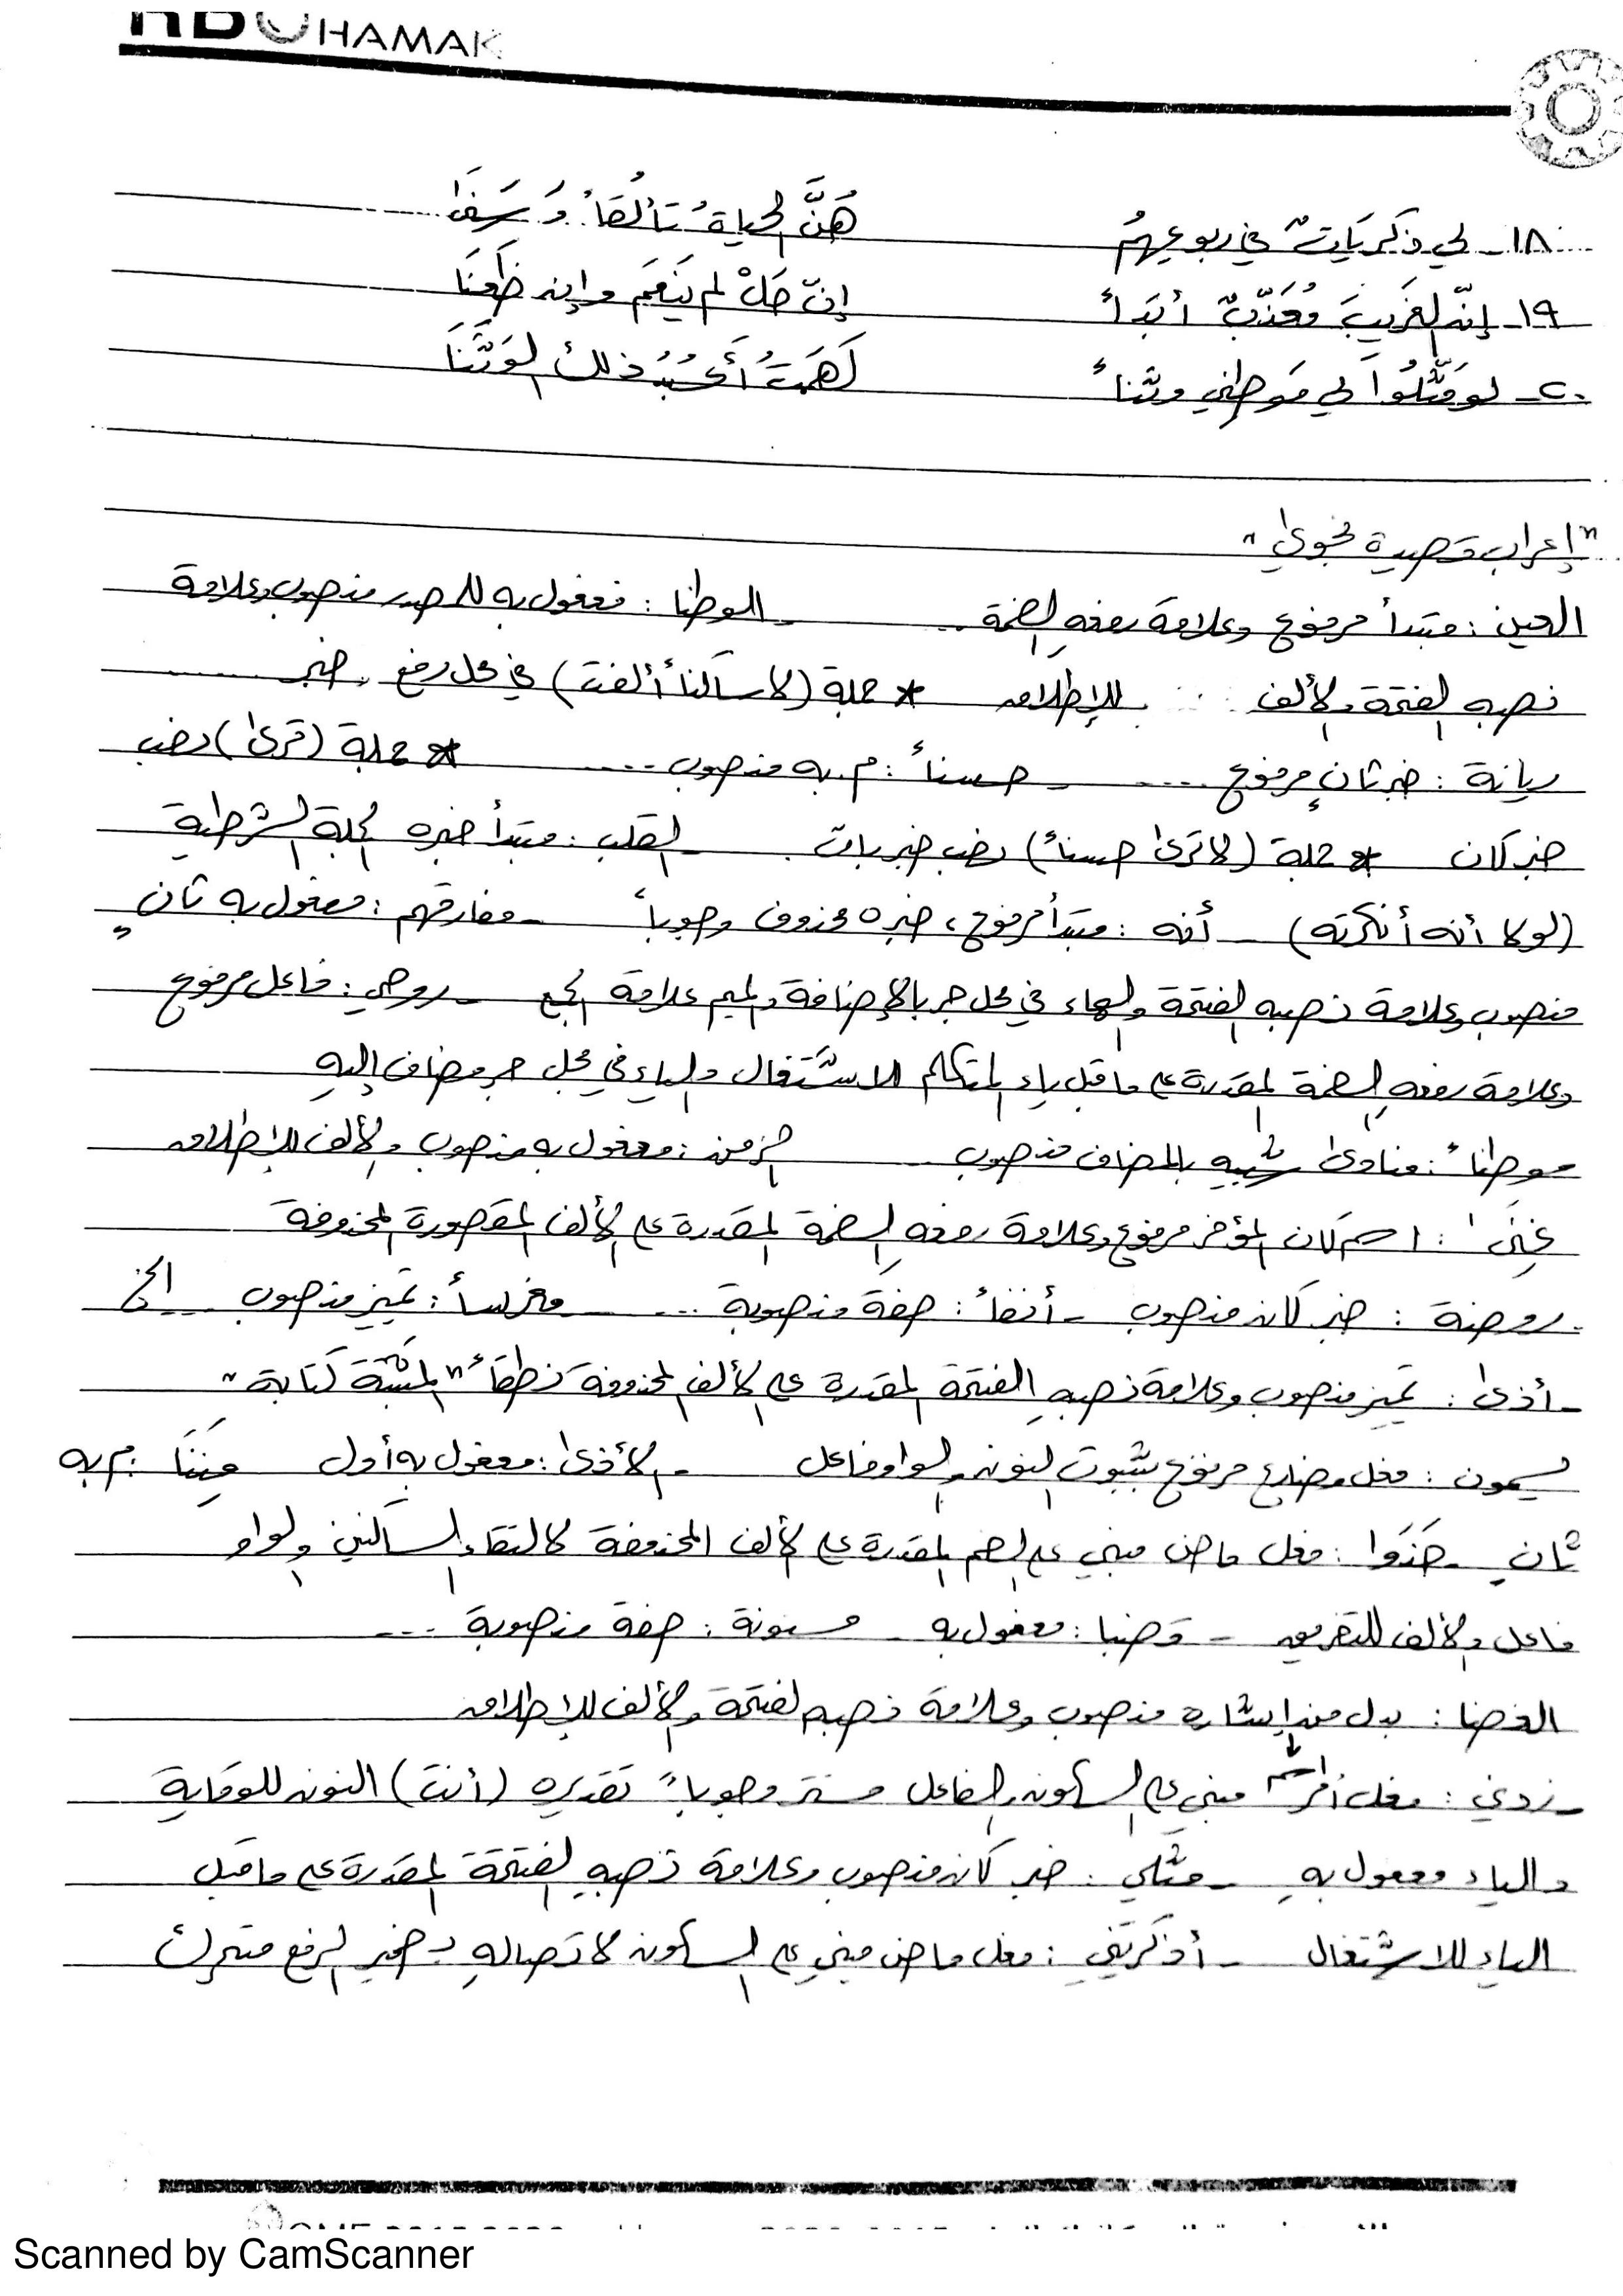 HAMAK
١٨- لي ذكرَيَاتٌ في ربوعِهِمُ هُنَّ الحياةُ تألُقاً وَسَنَا
١٩- إنّ الغَريبَ مُعَذّبٌ أبَداً إنْ حَلَّ لم يَنعَم وإن ظَعَنَا
٢٠- لو مَثّلُوا لي مَوطني وثناً لَهَمَمتُ أَعبُدُ ذلك الوَثَنَا
"إعراب قصيدة نجوى"
العين : مبتدأ مرفوع وعلامة رفعهِ الضمة - الوطنا : مفعول به للمصدر منصوب وعلامة
نصبه الفتحة والألف للإطلاق * جملة (لا ساكناً ألفت) في محل رفع خبر
ريانة : خبر ثانٍ مرفوع .... - حسناً : م. به منصوب .... * جملة (ترى) نصب
خبر كان * جملة (لا ترى حسناً) نصب خبر باتت - القلب : مبتدأ خبره الجملة الشرطية
(لولا أنه أنكرته) - أنه : مبتدأ مرفوع ، خبره محذوف وجوباً - مفارقهم : مفعول به ثانٍ
منصوب وعلامة نصبه الفتحة والهاء في محل جر بالإضافة والميم علامة الجمع - روحي : فاعل مرفوع
وعلامة رفعهِ الضمة المقدرة على ما قبل ياء المتكلم للاشتغال والياء في محل جر مضاف إليهِ
موطناً : منادى شبيه بالمضاف منصوب الزمن : مفعول به منصوب والألف للإطلاق
غِنَىً : اسم كان المؤخر مرفوع وعلامة رفعهِ الضمة المقدرة على الألف المقصورة المحذوفة
- روضة : خبر كان منصوب - أنفاً : صفة منصوبة ... - مغرساً : تمييز منصوب ... الخ
- أذىً : تمييز منصوب وعلامة نصبهِ الفتحة المقدرة على الألف المحذوفة نطقاً "المثبّتة كتابة"
يسمون : فعل مضارع مرفوع بثبوت النون والواو فاعل - الأذى : مفعول به أول مِنَنَا : م به
ثانٍ - جَنَوا : فعل ماضٍ مبني على الضم المقدرة على الألف المحذوفة لالتقاء الساكنين والواو
فاعل والألف للتفريق - قضبا : مفعول به - مسنونة : صفة منصوبة ...
الغصنا : بدل من اسم إشارة منصوب وعلامة نصبه الفتحة والألف للإطلاق
- زدني : فعل أمر مبني على السكون والفاعل مستتر وجوباً تقديره (أنت) النون للوقاية
والياء مفعول بهِ - مثلي : خبر كان منصوب وعلامة نصبهِ الفتحة المقدرة على ما قبل
الياء للاشتغال - أذكرتني : فعل ماضٍ مبني على السكون لاتصالهِ بضمير الرفع متحرك
Scanned by CamScanner